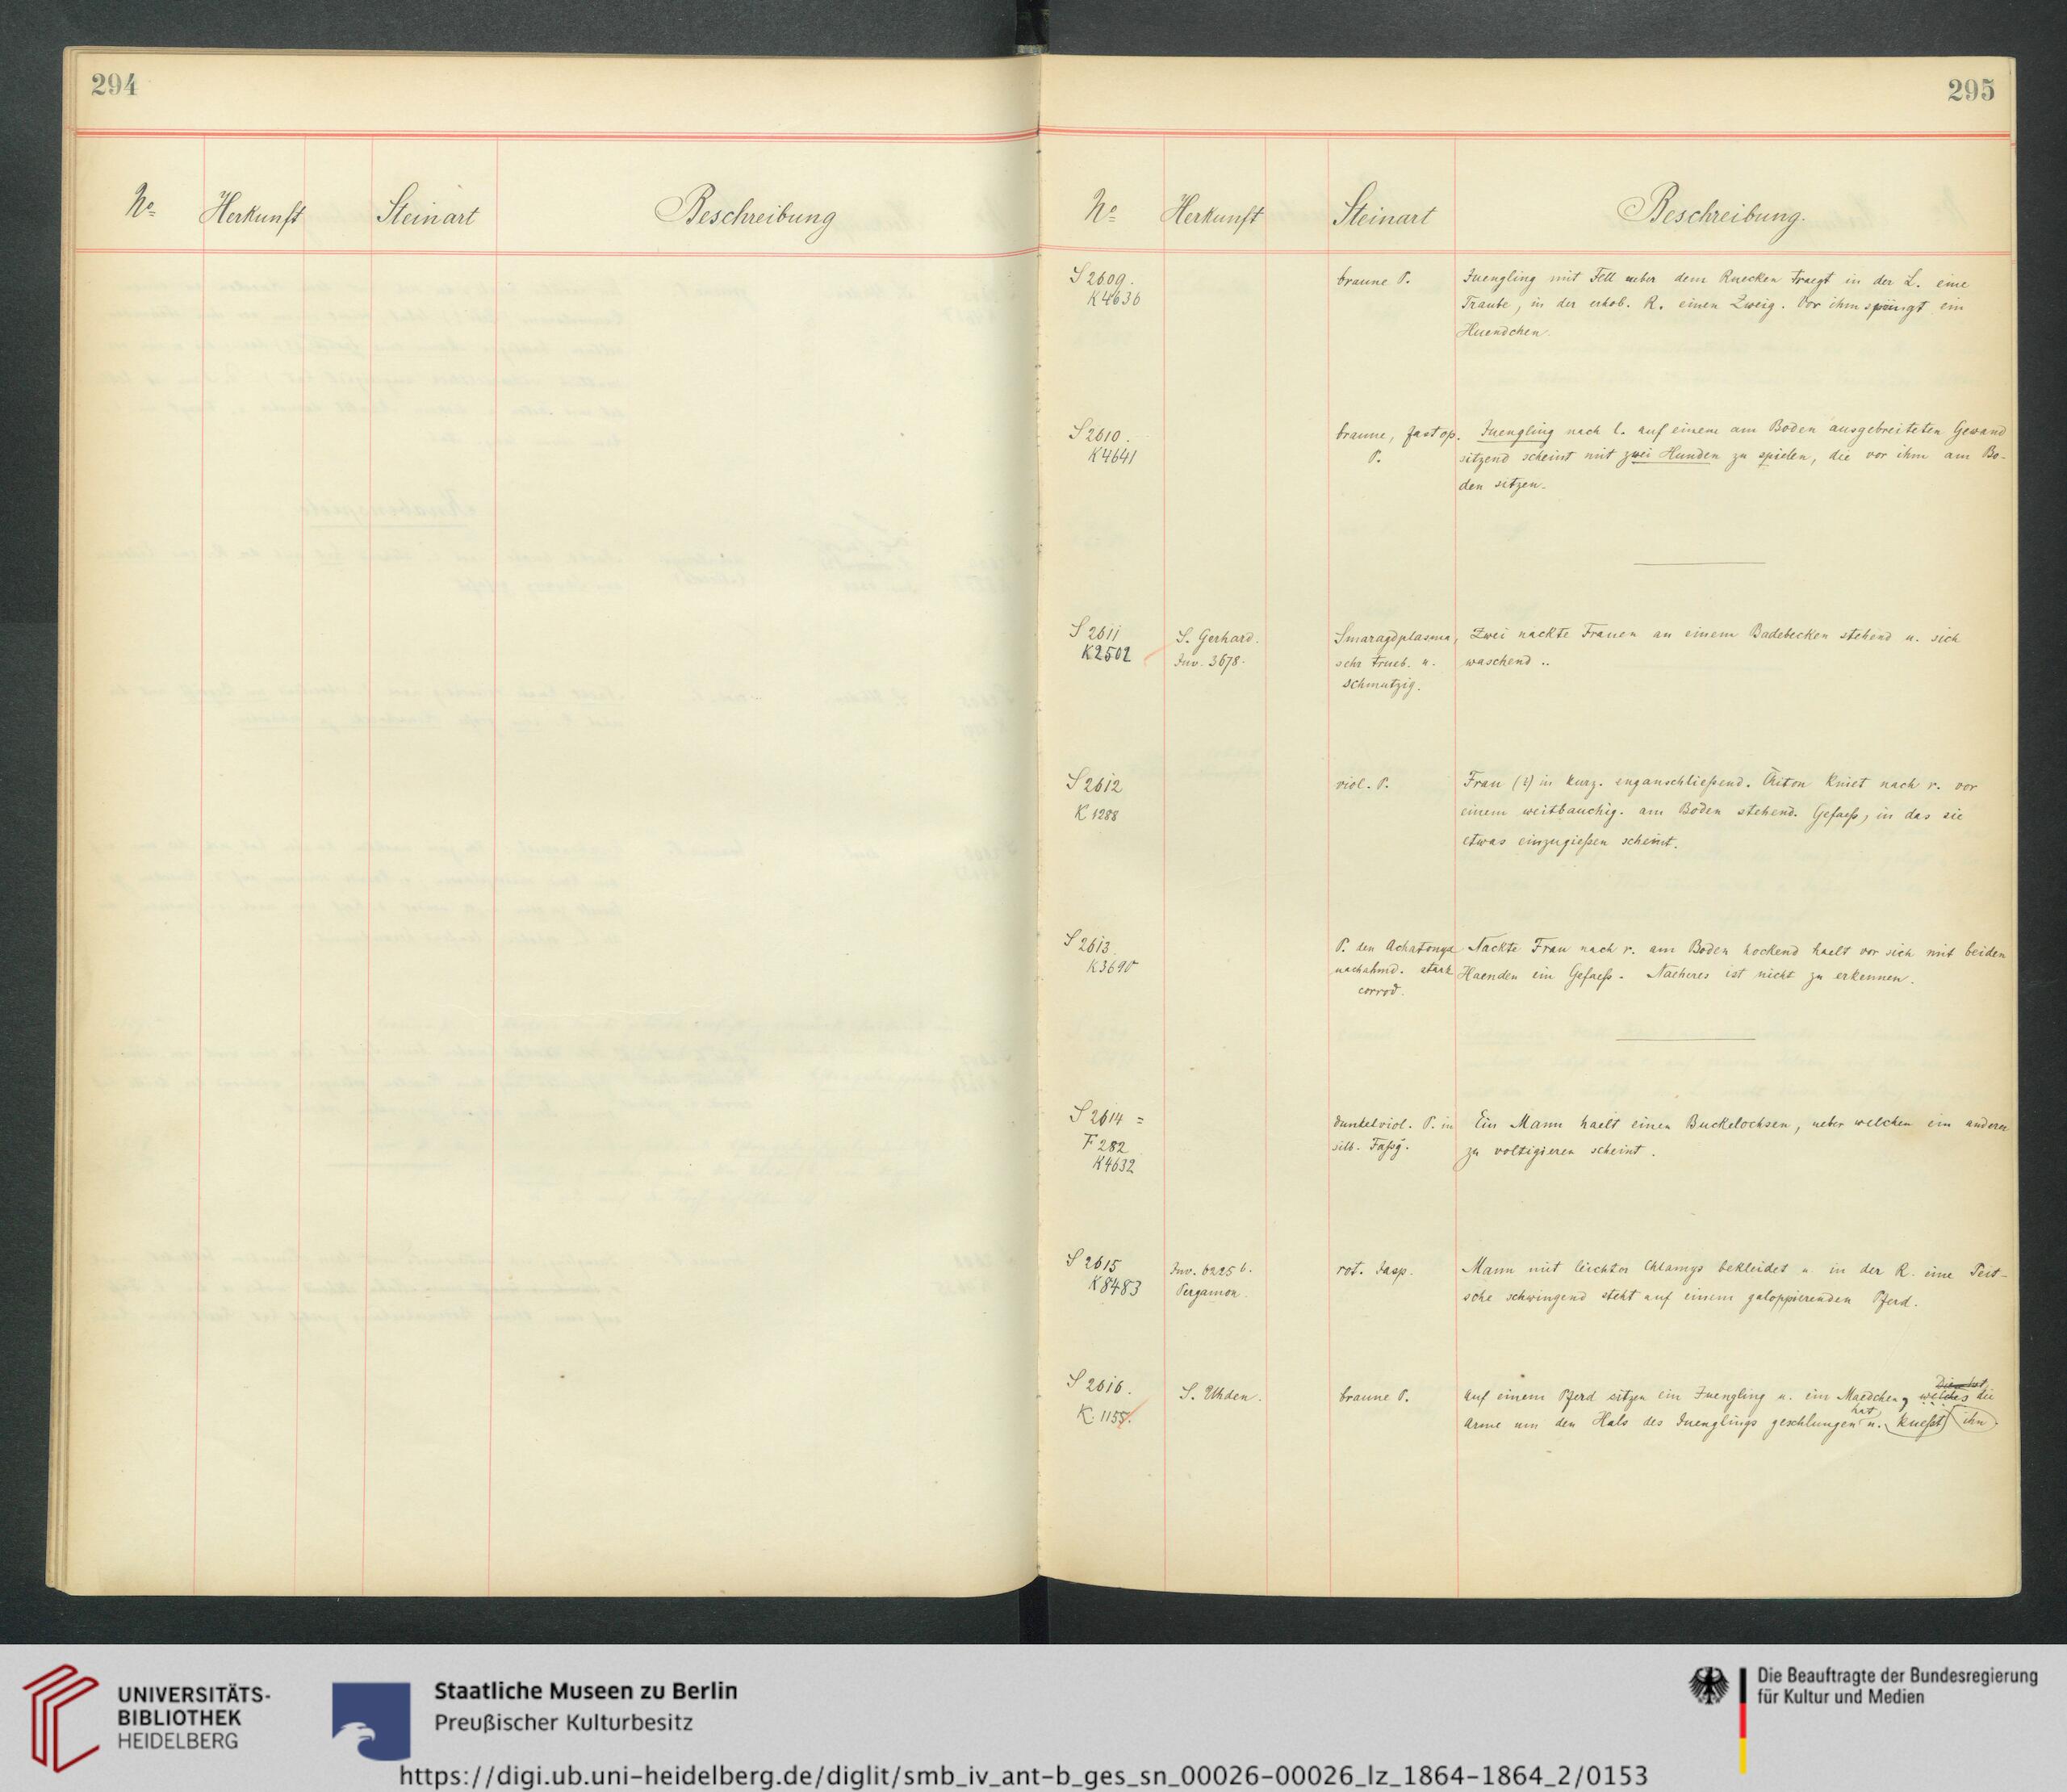 294
No Herkunft Steinart Beschreibung
295
No Herkunft Steinart Beschreibung.
S 2609. braune P. Juengling mit Fell ueber dem Ruecken traegt in der L. eine
K 4636 Traube, in der erhob. R. einen Zweig. Vor ihm springt ein
Huendchen.
S 2610. braune, fast op. Juengling nach l. auf einem am Boden ausgebreiteten Gewand
K 4641 P. sitzend scheint mit zwei Hunden zu spielen, die vor ihm am Bo-
den sitzen.
S 2611 S. Gerhard. Smaragdplasma, Zwei nackte Frauen an einem Badebecken stehend u. sich
K 2502 Inv. 3678. sehr trueb. u. waschend..
schmutzig.
S 2612 viol. P. Frau (?) in kurz. enganschließend. Chiton kniet nach r. vor
K 1288 einem weitbauchig. am Boden stehend. Gefaeß, in das sie
etwas einzugießen scheint.
S 2613 P. den Achatonyx Nackte Frau nach r. am Boden hockend haelt vor sich mit beiden
K 3690 nachahmd. stark Haenden ein Gefaeß. Naeheres ist nicht zu erkennen.
corrod.
S 2614 = dunkelviol. P. in Ein Mann haelt einen Buckelochsen, ueber welchen ein anderer
F 282 silb. Faßg. zu voltigieren scheint.
K 4632
S 2615 Inv. 6225 b. rot. Jasp. Mann mit leichter Chlamys bekleidet u. in der R. eine Peit-
K 8483 Pergamon. sche schwingend steht auf einem galoppierenden Pferd.
S 2616. S. Uhden. braune P. Auf einem Pferd sitzen ein Juengling u. ein Maedchen, welches die
K. 1155. Arme um den Hals des Juenglings geschlungen hat u. kuesst ihn.
UNIVERSITÄTS-
BIBLIOTHEK
HEIDELBERG
Staatliche Museen zu Berlin
Preußischer Kulturbesitz
Die Beauftragte der Bundesregierung
für Kultur und Medien
https://digi.ub.uni-heidelberg.de/diglit/smb_iv_ant-b_ges_sn_00026-00026_lz_1864-1864_2/0153